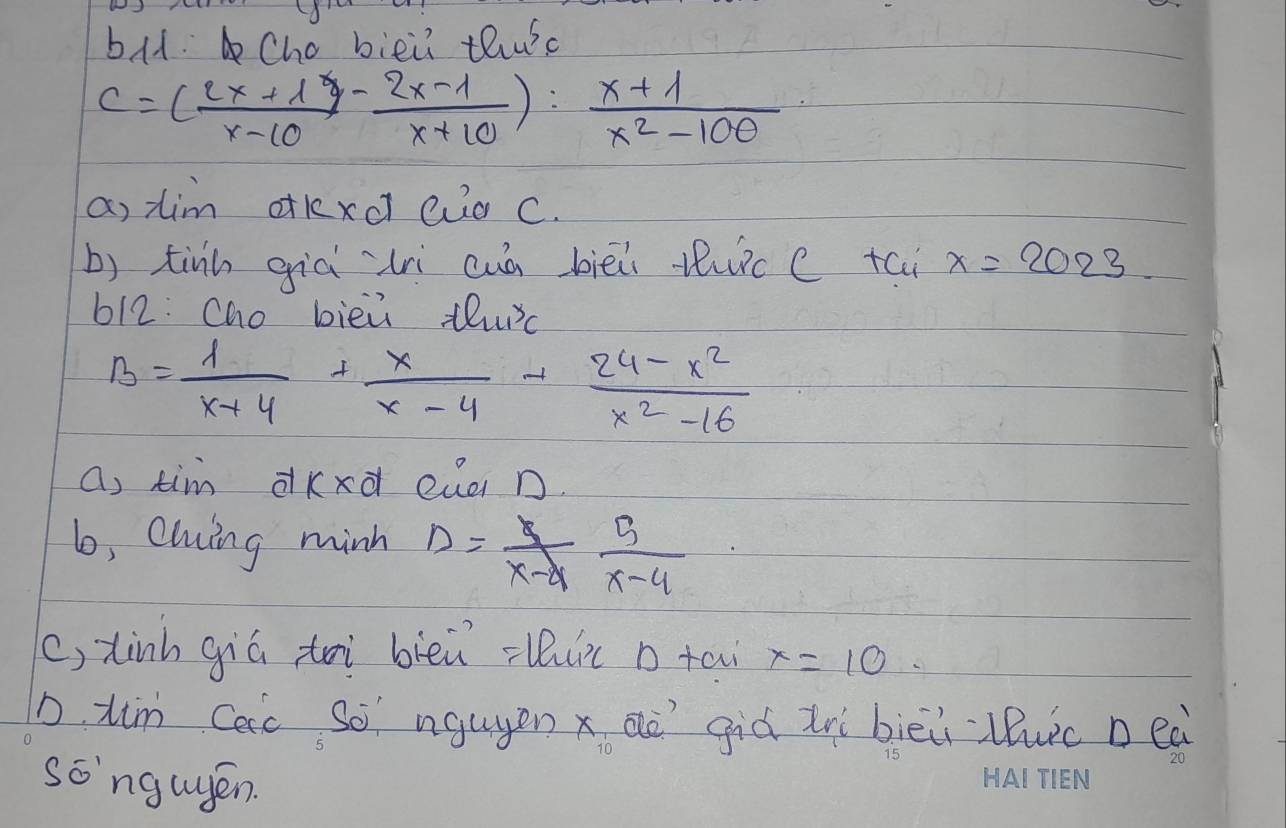 b11: Cho biểu thức
C = (2x+1)/(x-10) - (2x-1)/(x+10)) : (x+1)/(x² - 100)
a) tìm đkxđ của C.
b) tính giá trị của biểu thức C tại x = 2023.
b12: Cho biểu thức
B = 1/(x+4) + x/(x-4) + (24-x²)/(x²-16)
a) tìm đkxđ của D.
b, Chứng minh D = 5/(x-4).
C, tính giá trị biểu thức D tại x = 10.
D. tìm các số nguyên x để giá trị biểu thức D là
số nguyên.
0 5 10 15 20
HAI TIEN